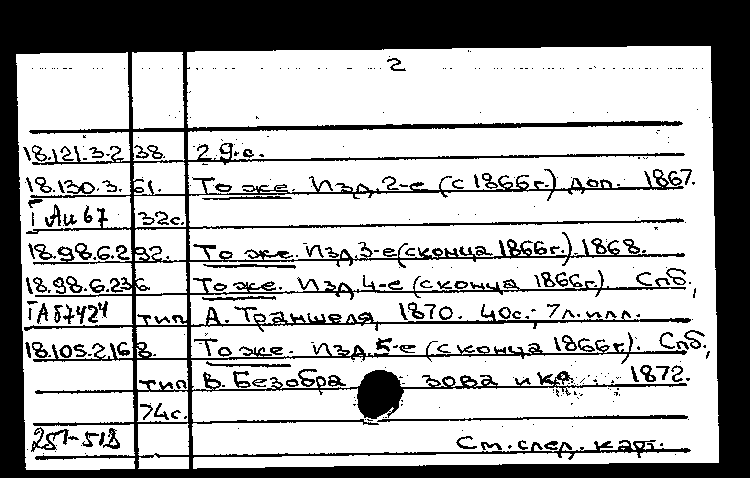 2
18.121.3.238. 29.с.
18.130.3.61. То же. Изд. 2-е (с 1866г.) доп. 1867.
ГАи67 32с.
18.98.6.292. То же. Изд. 3-е (с конца 1866г.) 1868.
18.98.6.236 То же. Изд. 4-е (с конца 1866г.). Спб.,
ГАБ7424 тип А. Траншеля, 1870. 40с.; 7л.илл.
18.105.2.168. То же. Изд. 5-е (с конца 1866г.). Спб.,
тип В. Безобразова и ко 1872.
74с.
251-518 См. след. карт.